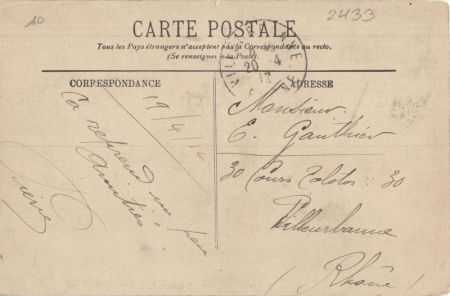 10
2433
CARTE POSTALE
Tous les Pays étrangers n'acceptent pas la Correspondance au recto.
(Se renseigner à la Poste).
20 - 4
CORRESPONDANCE
ADRESSE
19/4/12
Ça reprend un peu
Amitiés
Pierre
Monsieur
E. Gauthier
30 Cours Tolstoï 30
Villeurbanne
(Rhône)